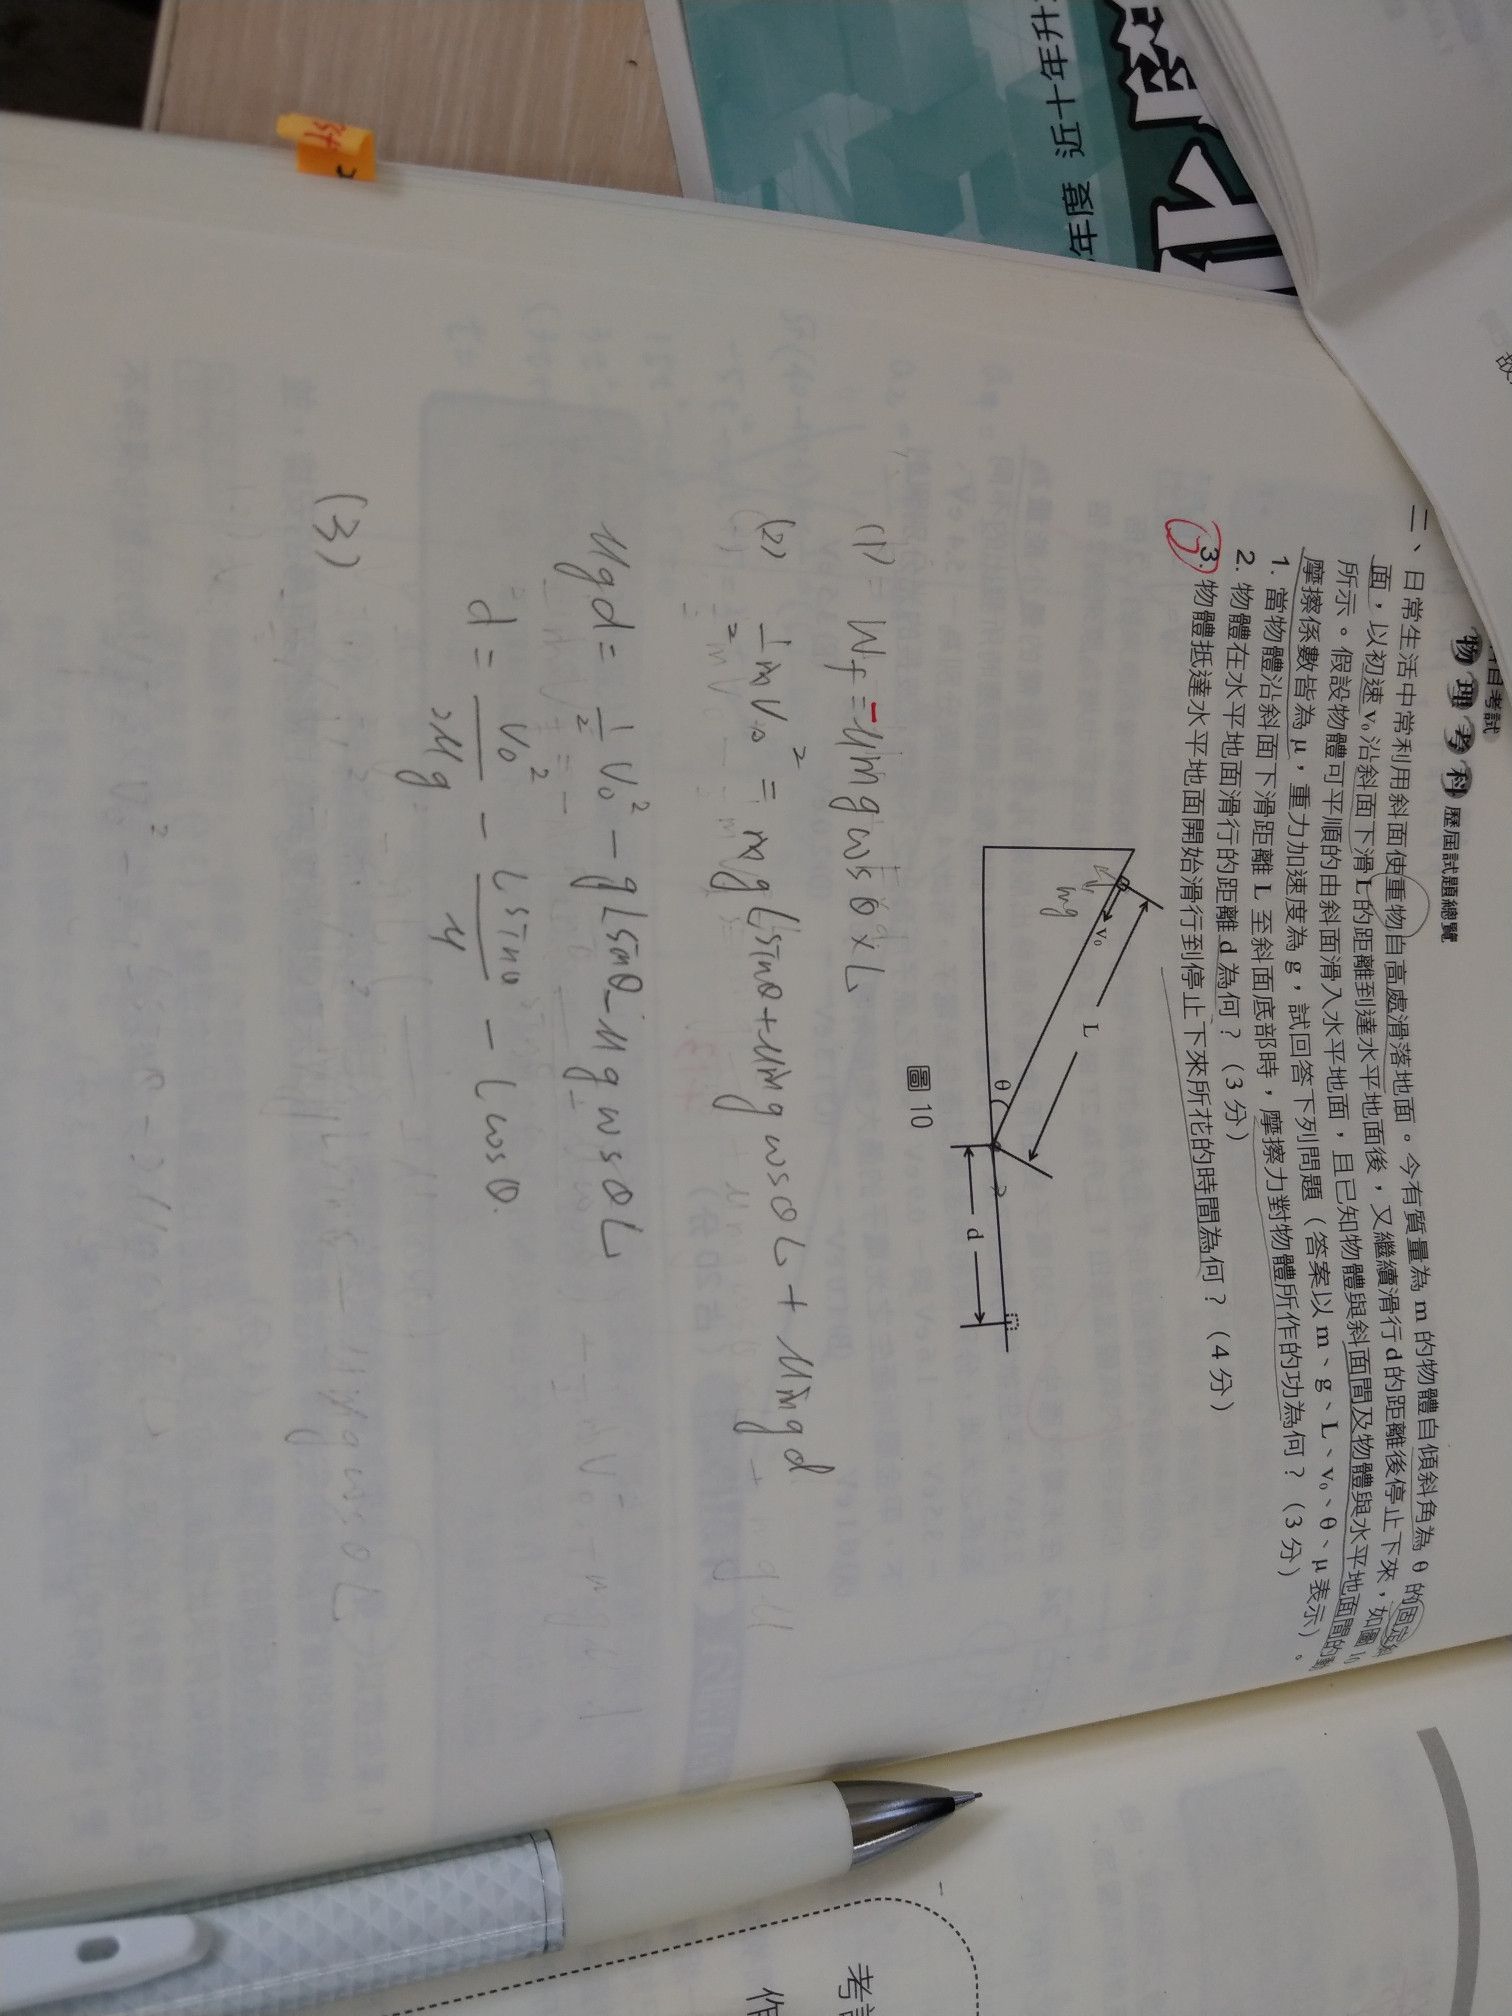 物理考科 歷屆試題總覽
二、日常生活中常利用斜面使重物自高處滑落地面。今有質量為 m 的物體自傾斜角為 θ 的固定斜
面，以初速 v₀ 沿斜面下滑 L 的距離到達水平地面後，又繼續滑行 d 的距離後停止下來，如圖 10
所示。假設物體可平順的由斜面滑入水平地面，且已知物體與斜面間及物體與水平地面間的動
摩擦係數皆為 μ，重力加速度為 g，試回答下列問題（答案以 m、g、L、v₀、θ、μ 表示）。
1. 當物體沿斜面下滑距離 L 至斜面底部時，摩擦力對物體所作的功為何？（3 分）
2. 物體在水平地面滑行的距離 d 為何？（3 分）
3. 物體抵達水平地面開始滑行到停止下來所花的時間為何？（4 分）
mg
v₀
L
θ
d
圖 10
(1) = Wf = -μmg cosθ × L
(2) ½mv₀² = mgLsinθ + μmg cosθL + μmgd
μgd = ½v₀² - gLsinθ - μg cosθL
d = v₀²/2μg - Lsinθ/μ - Lcosθ.
(3)
年度 近十年升